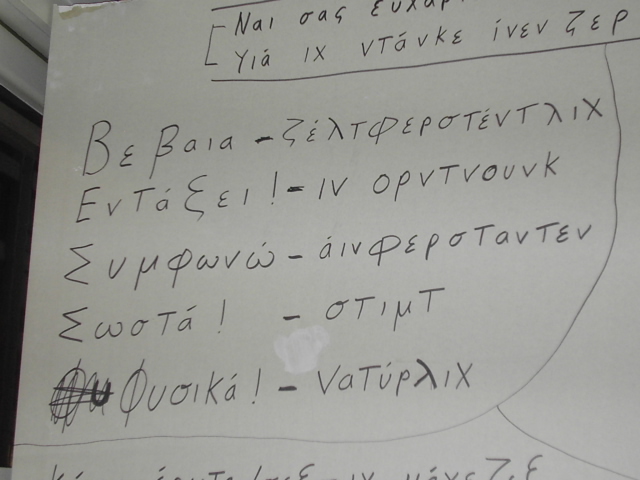 Ναι σας
Γιά ιχ ντάνκε ίνεν ζερ
Βεβαια - ζέλτφερστέντλιχ
Εντάξει! - ιν ορντνουνκ
Συμφωνώ - άινφερσταντεν
Σωστά! - στιμτ
Φυσικά! - νατύρλιχ